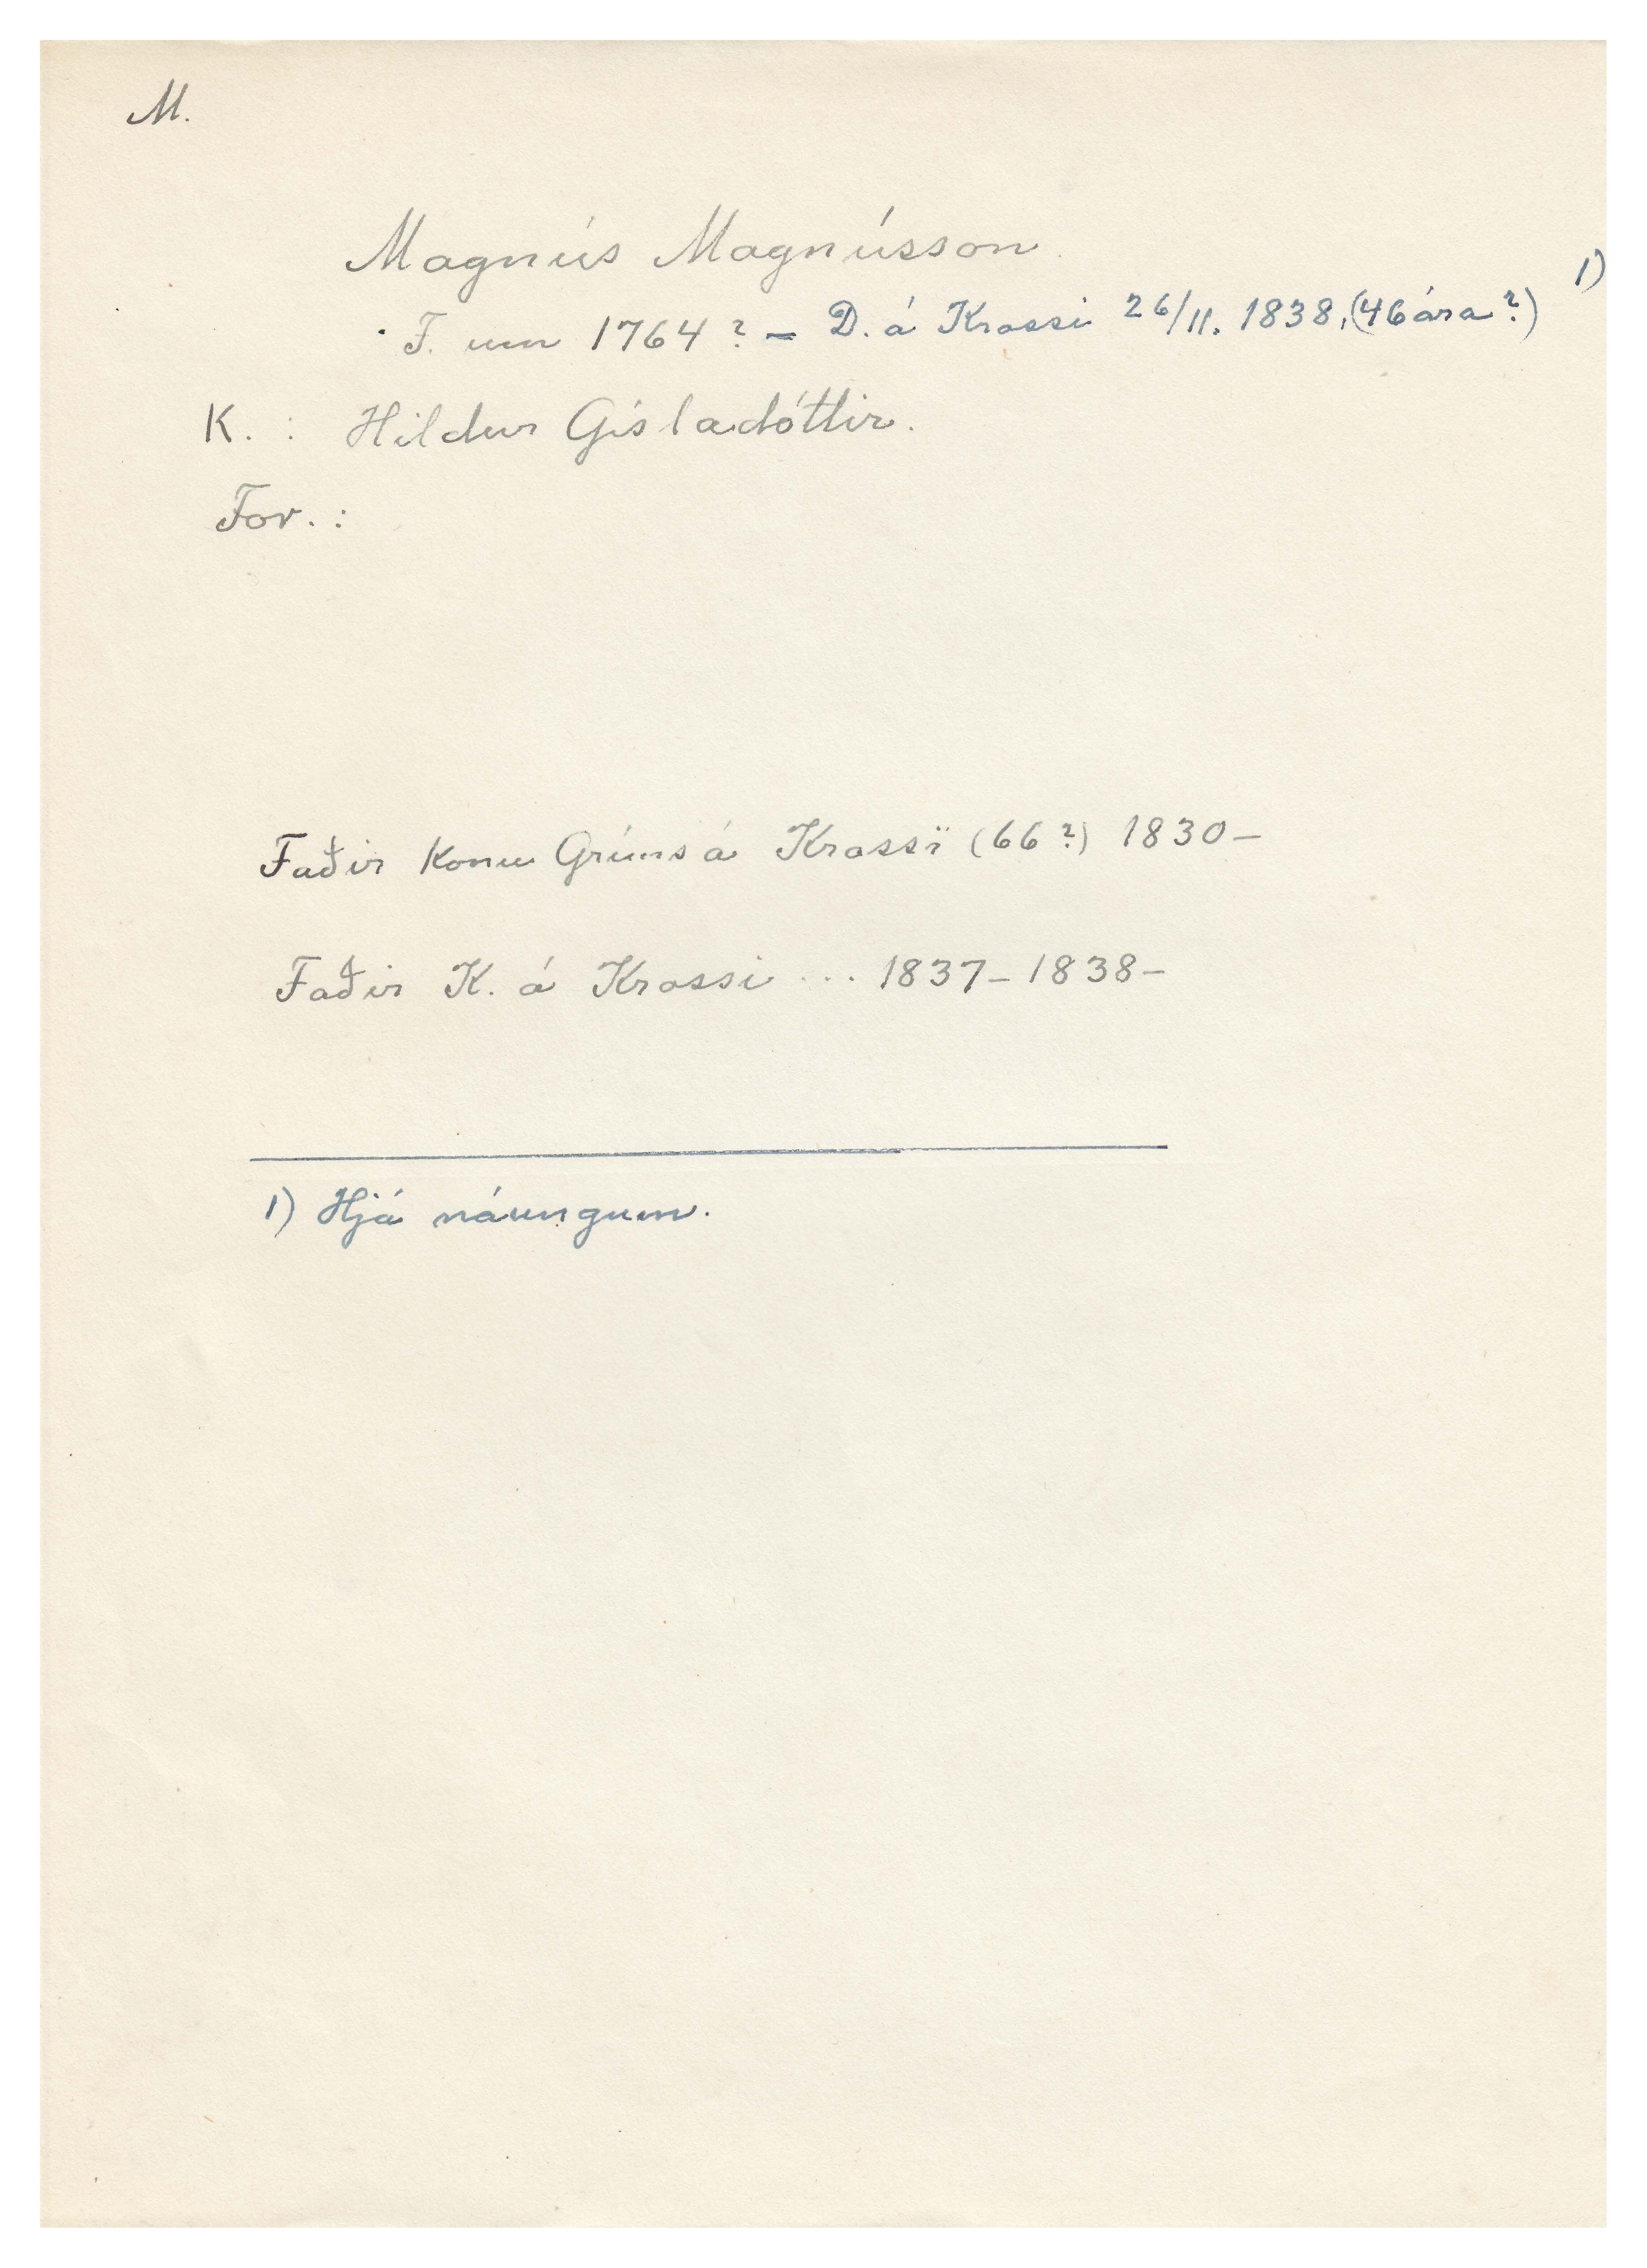 M.
Magnús Magnússon.
F. um 1764? – D. á Krossi 26/11. 1838. (46 ára?) 1)
K. : Hildur Gísladóttir.
For. :
Faðir konu Gríms á Krossi (66?) 1830–
Faðir K. á Krossi ... 1837–1838–
1) Hjá náungum.